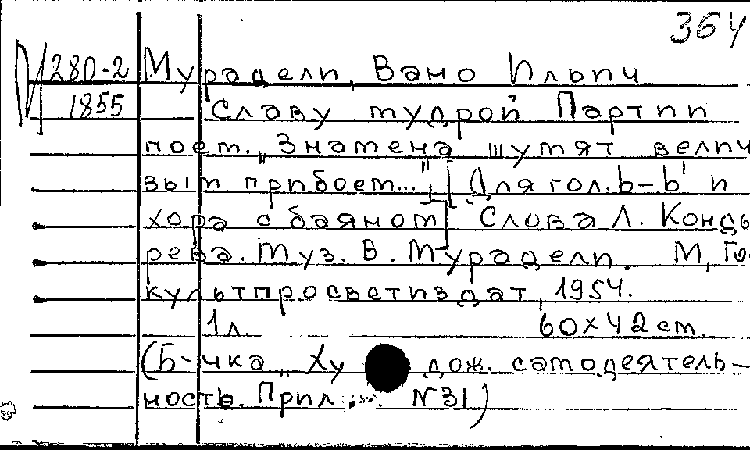 364
М 280-2 Мурадели, Вано Ильич
1855 Славу мудрой Партии
поем. „Знамена шумят велич
вым прибоем..." [Для гол. b-b' и
хора с баяном] Слова Л. Конды
рева. Муз. В. Мурадели. М, Гос
культпросветиздат, 1954.
1 л. 60х42 см.
(Б-чка „Худож. самодеятель-
ность. Прил. №31)